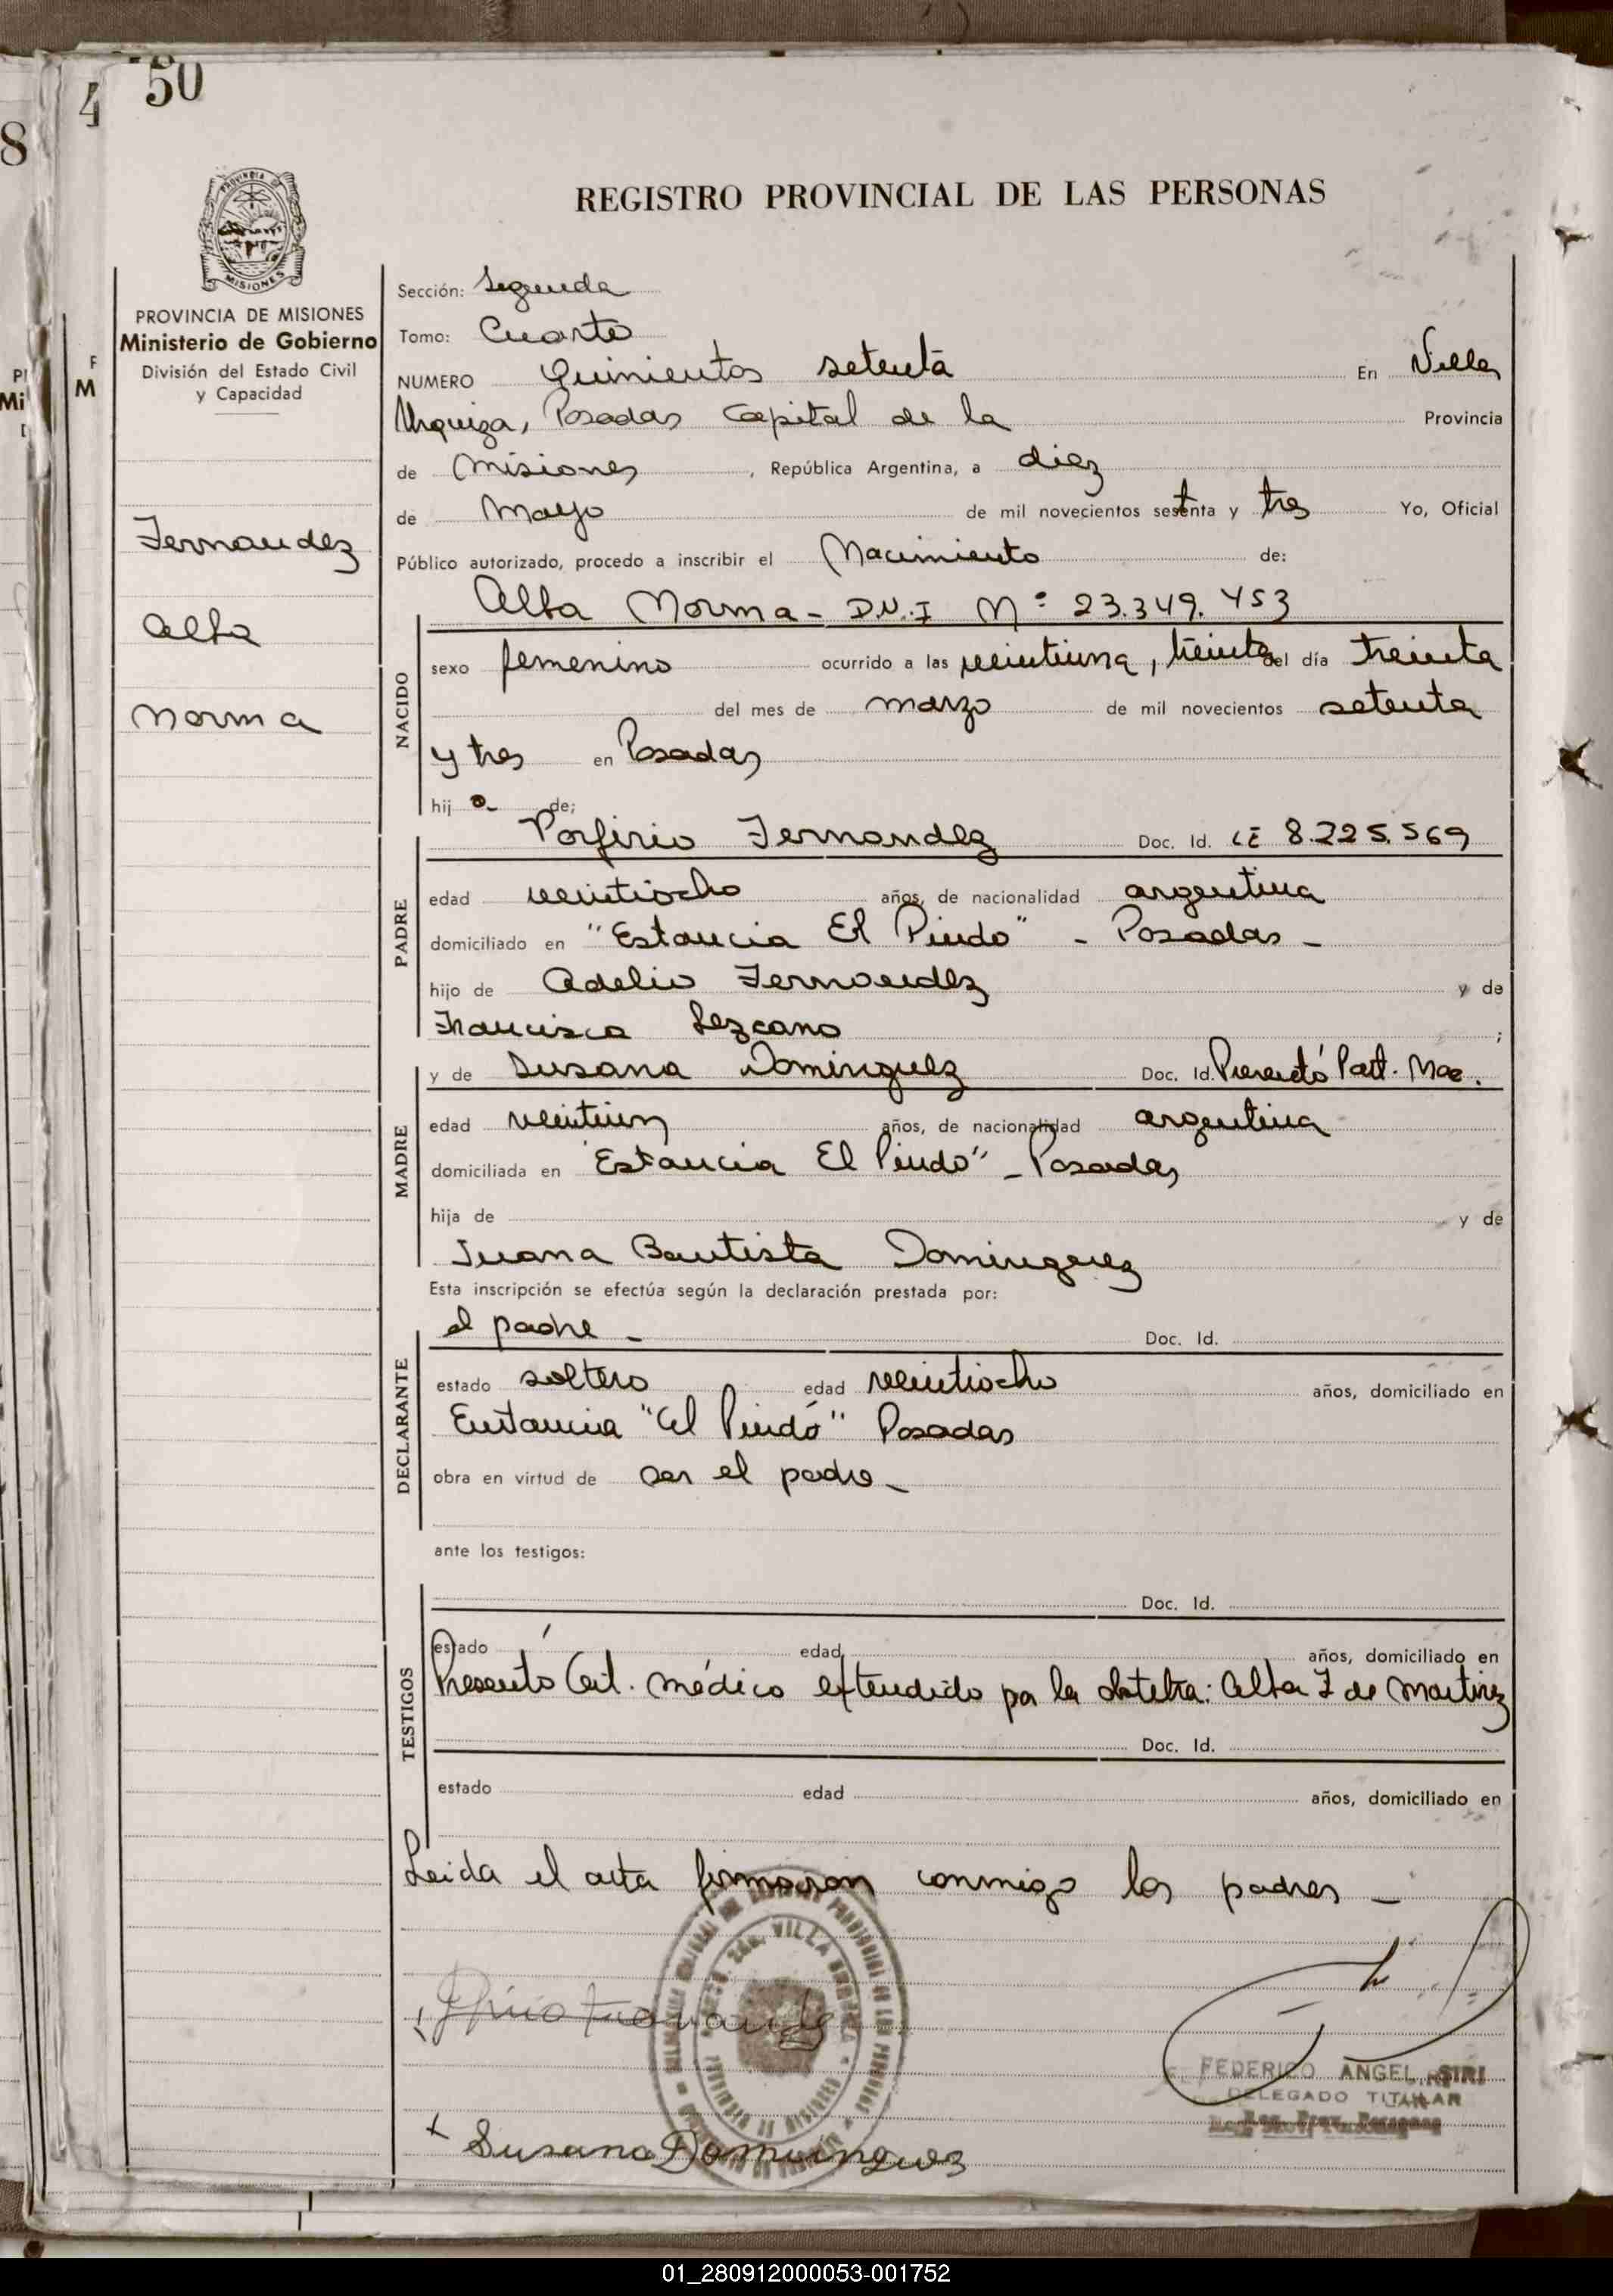 50
4
8
REGISTRO PROVINCIAL DE LAS PERSONAS
MISIONES
PROVINCIA DE MISIONES
Ministerio de Gobierno
División del Estado Civil
y Capacidad
Fernandez
Alba
Norma
Sección: Segunda
Tomo: Cuarto
NUMERO Quinientos setenta En Villa
Urquiza, Posadas Capital de la Provincia
de Misiones, República Argentina, a diez
de Mayo de mil novecientos setenta y tres Yo, Oficial
Público autorizado, procedo a inscribir el Nacimiento de:
Alba Norma - D.N.I Nº 23.349.453
NACIDO
sexo femenino ocurrido a las veintiuna, treinta del día treinta
del mes de marzo de mil novecientos setenta
y tres en Posadas
hij a de:
Porfirio Fernandez Doc. Id. LE 8.225.569
PADRE
edad veintiocho años, de nacionalidad argentina
domiciliado en "Estancia El Pindo" - Posadas -
hijo de Adelio Fernandez y de
Francisca Lezcano ;
y de Susana Dominguez Doc. Id. Presentó Part. Nac.
MADRE
edad veintiun años, de nacionalidad argentina
domiciliada en "Estancia El Pindo" - Posadas
hija de y de
Juana Bautista Dominguez
Esta inscripción se efectúa según la declaración prestada por:
el padre - Doc. Id.
DECLARANTE
estado soltero edad veintiocho años, domiciliado en
Estancia "El Pindó" Posadas
obra en virtud de ser el padre -
ante los testigos:
Doc. Id.
TESTIGOS
estado edad años, domiciliado en
Presentó Cert. médico extendido por la obstetra: Alba F de Martinez
Doc. Id.
estado edad años, domiciliado en
Leida el acta firmaron conmigo los padres -
Susana Dominguez
FEDERICO ANGEL SIRI
DELEGADO TITULAR
01_280912000053-001752